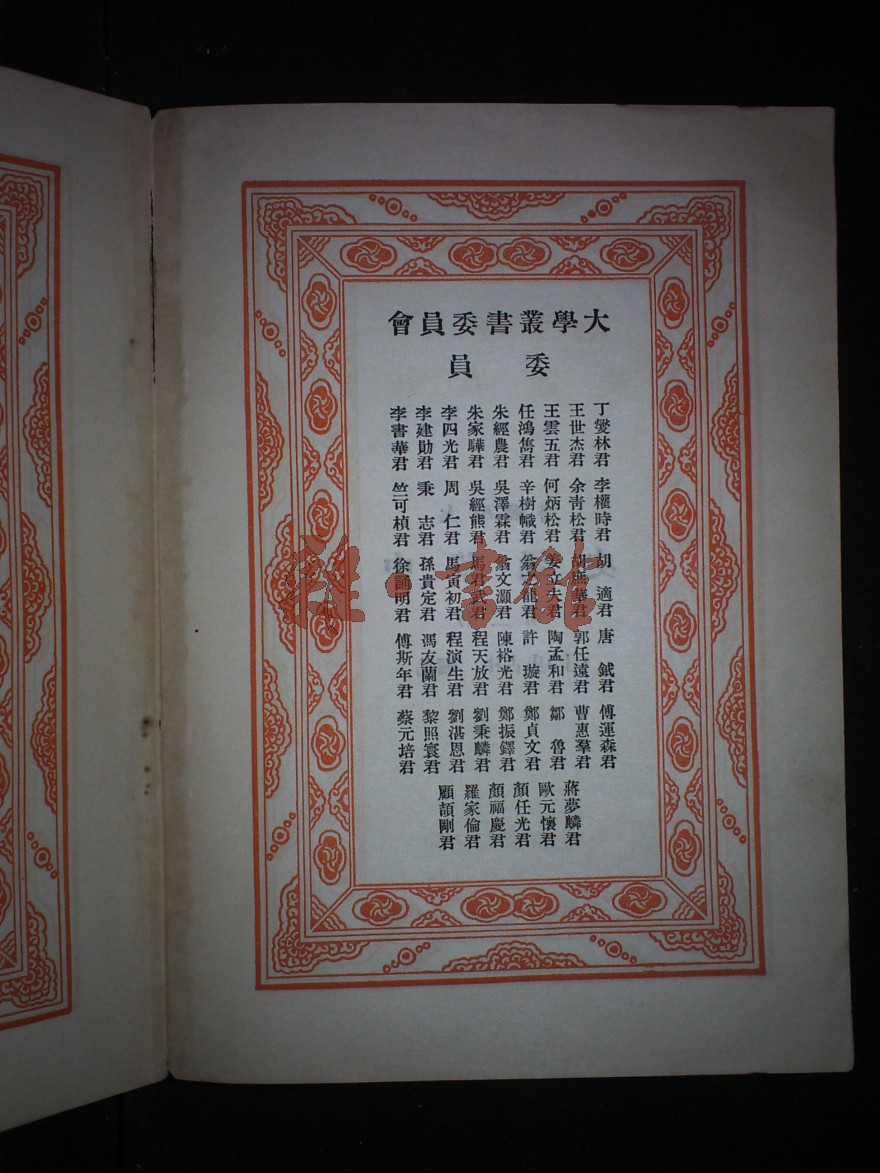 大學叢書委員會
委員
丁燮林君
王世杰君
王雲五君
任鴻雋君
朱經農君
朱家驊君
李四光君
李建勛君
李書華君
李權時君
余青松君
何炳松君
辛樹幟君
吳澤霖君
吳經熊君
周仁君
秉志君
竺可楨君
胡適君
胡庶華君
姜立夫君
翁之龍君
翁文灝君
馬君武君
馬寅初君
孫貴定君
徐誦明君
唐鉞君
郭任遠君
陶孟和君
許璇君
陳裕光君
程天放君
程演生君
馮友蘭君
傅斯年君
傅運森君
曹惠羣君
鄒魯君
鄭貞文君
鄭振鐸君
劉秉麟君
劉湛恩君
黎照寰君
蔡元培君
蔣夢麟君
歐元懷君
顏任光君
顏福慶君
羅家倫君
顧頡剛君